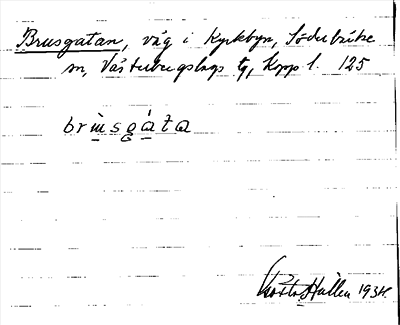 Brusgatan, väg i Kyrkbyn, Söderbärke
sn, Västerbergslags tg, Kopp l. 125
brùsgáta
Hallén 1934.